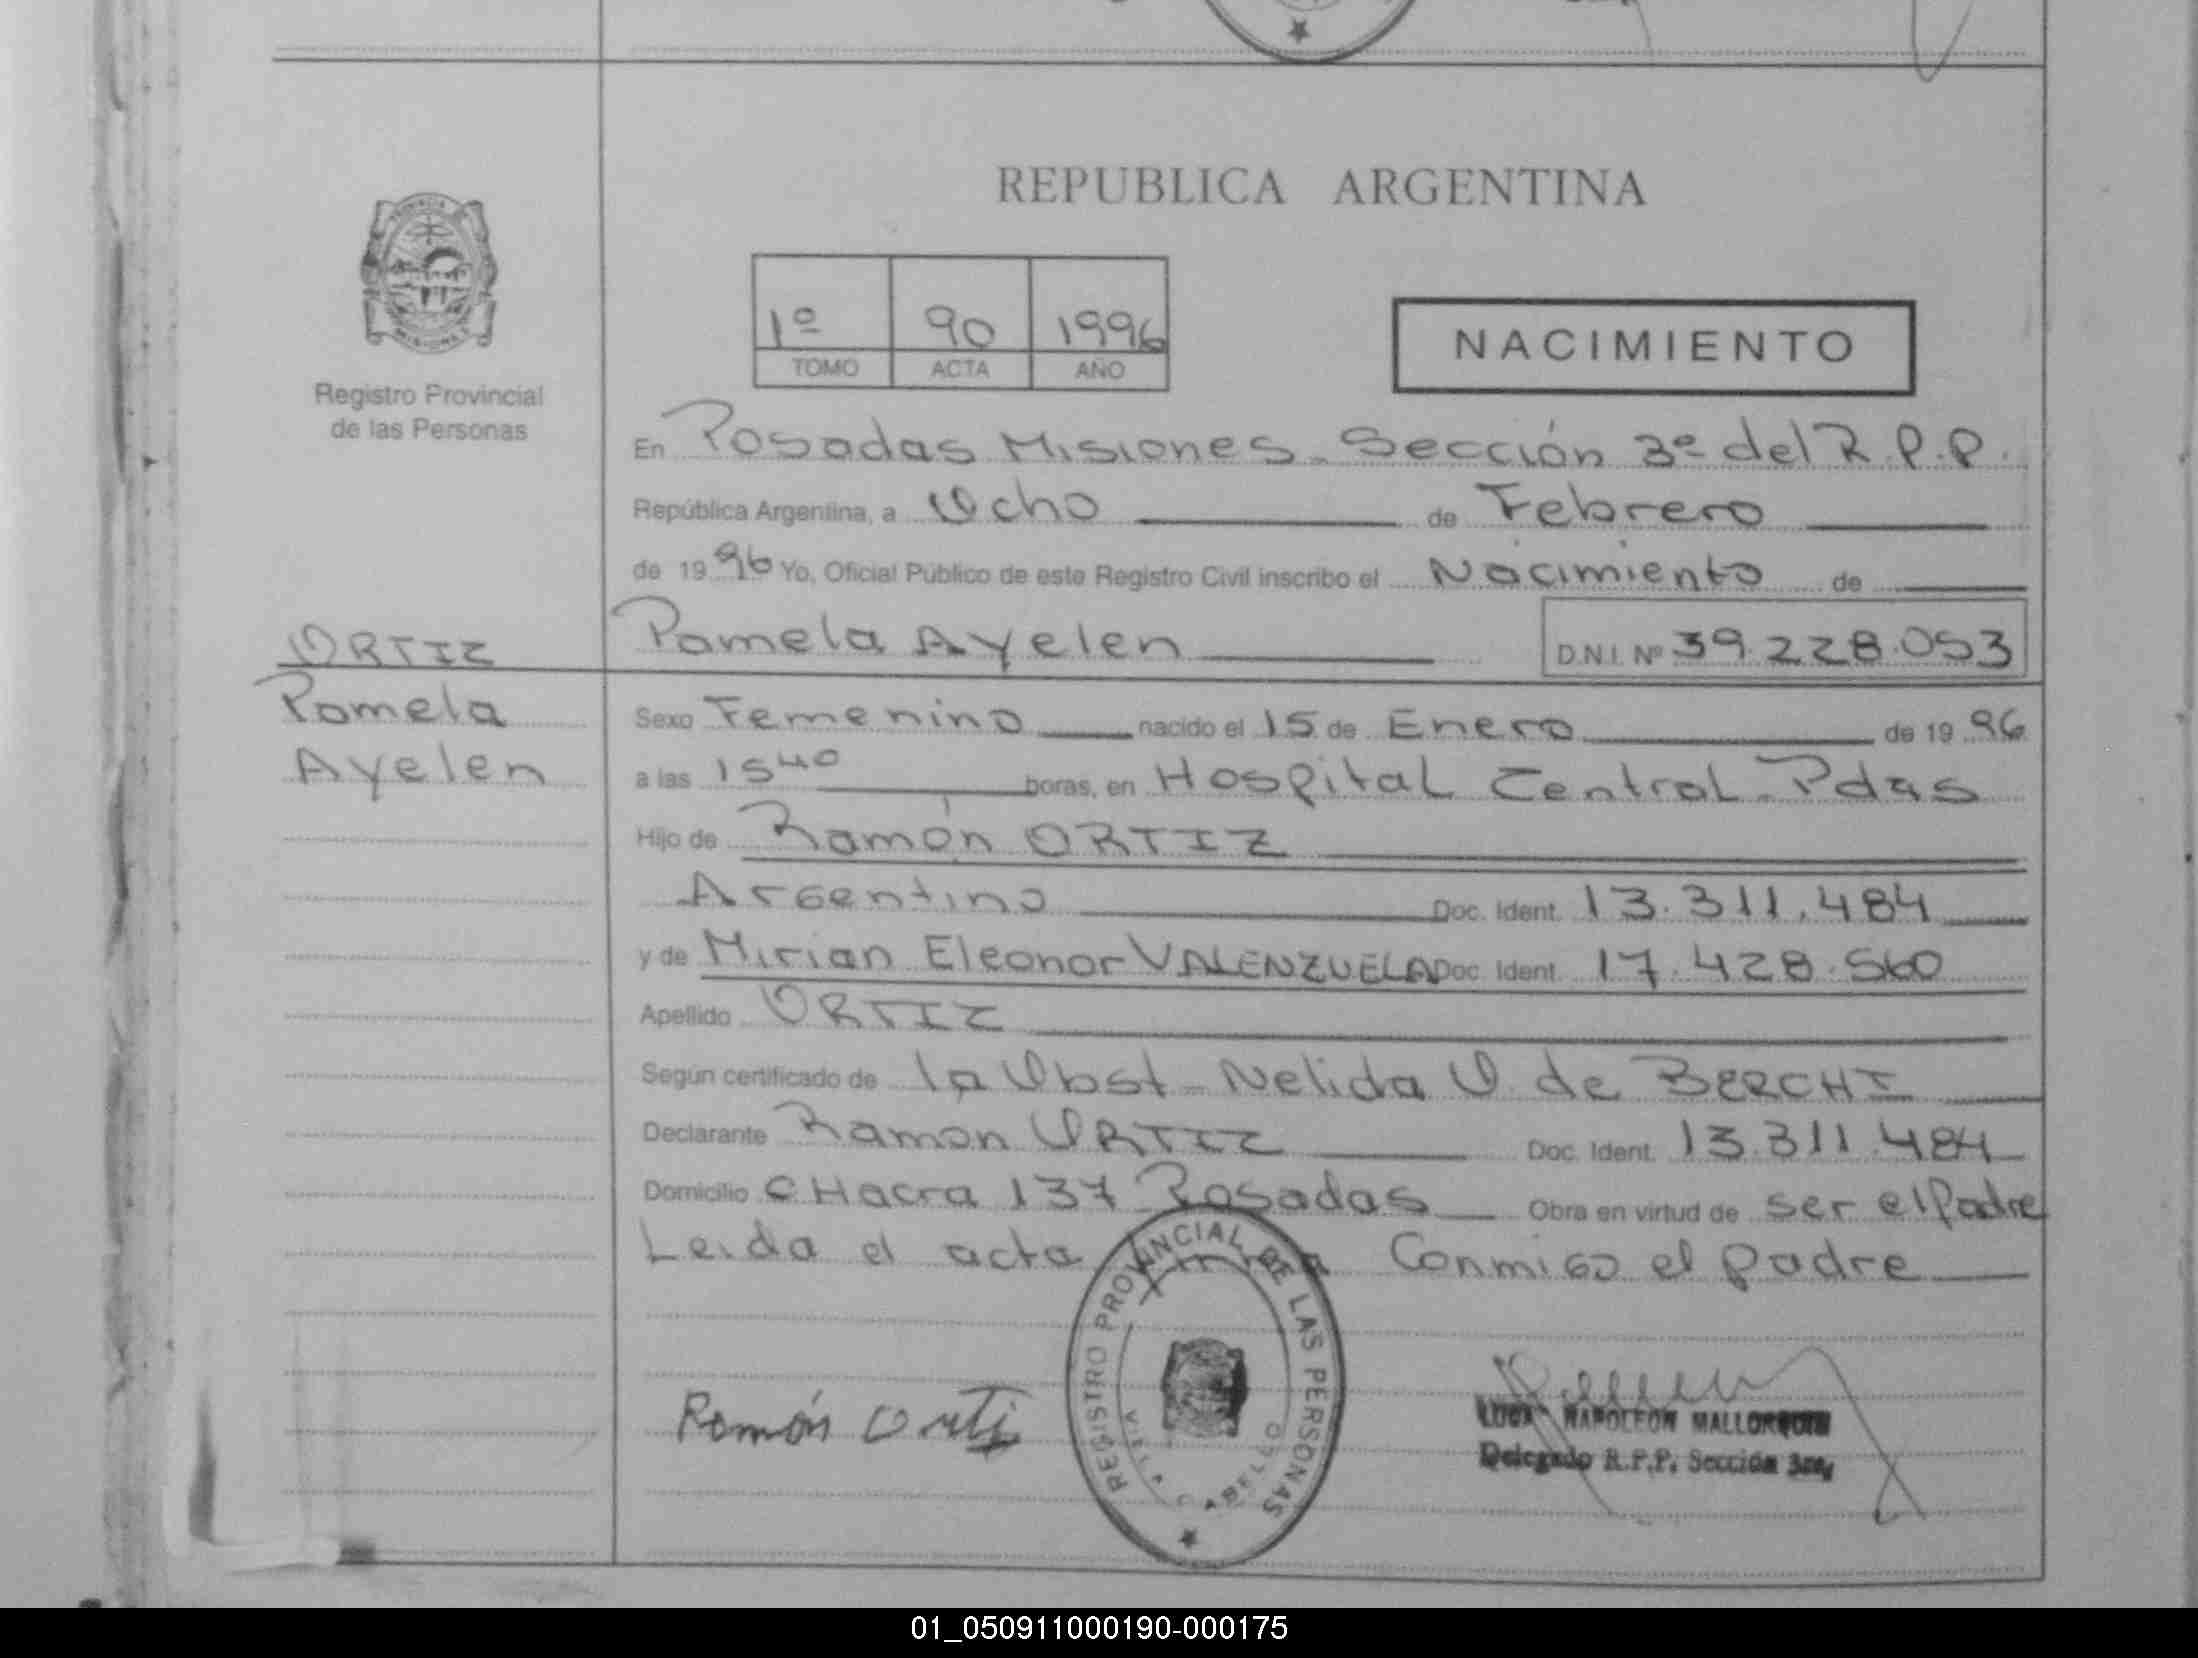 REPUBLICA ARGENTINA
PROVINCIA
MISIONES
Registro Provincial
de las Personas
1º 90 1996
TOMO ACTA AÑO
NACIMIENTO
En Posadas Misiones - Sección 3º del R.P.P.
República Argentina, a Ocho de Febrero
de 1996 Yo, Oficial Público de este Registro Civil inscribo el Nacimiento de
Pamela Ayelen D.N.I. Nº 39.228.053
ORTIZ
Pamela
Ayelen
Sexo Femenino nacido el 15 de Enero de 1996
a las 15 40 horas, en Hospital Central - Pdas
Hijo de Ramón ORTIZ
Argentino Doc. Ident. 13.311.484
y de Mirian Eleonor VALENZUELA Doc. Ident. 17.428.560
Apellido ORTIZ
Según certificado de la Obst - Nelida O. de BERCHI
Declarante Ramon ORTIZ Doc. Ident. 13.311.484
Domicilio CHacra 137 Posadas Obra en virtud de ser el Padre
Leida el acta Conmigo el padre
REGISTRO PROVINCIAL DE LAS PERSONAS
VILLA CABELLO
Ramón Orti
NAPOLEON
Delegado R.P.P. Sección 3ra.
01_050911000190-000175